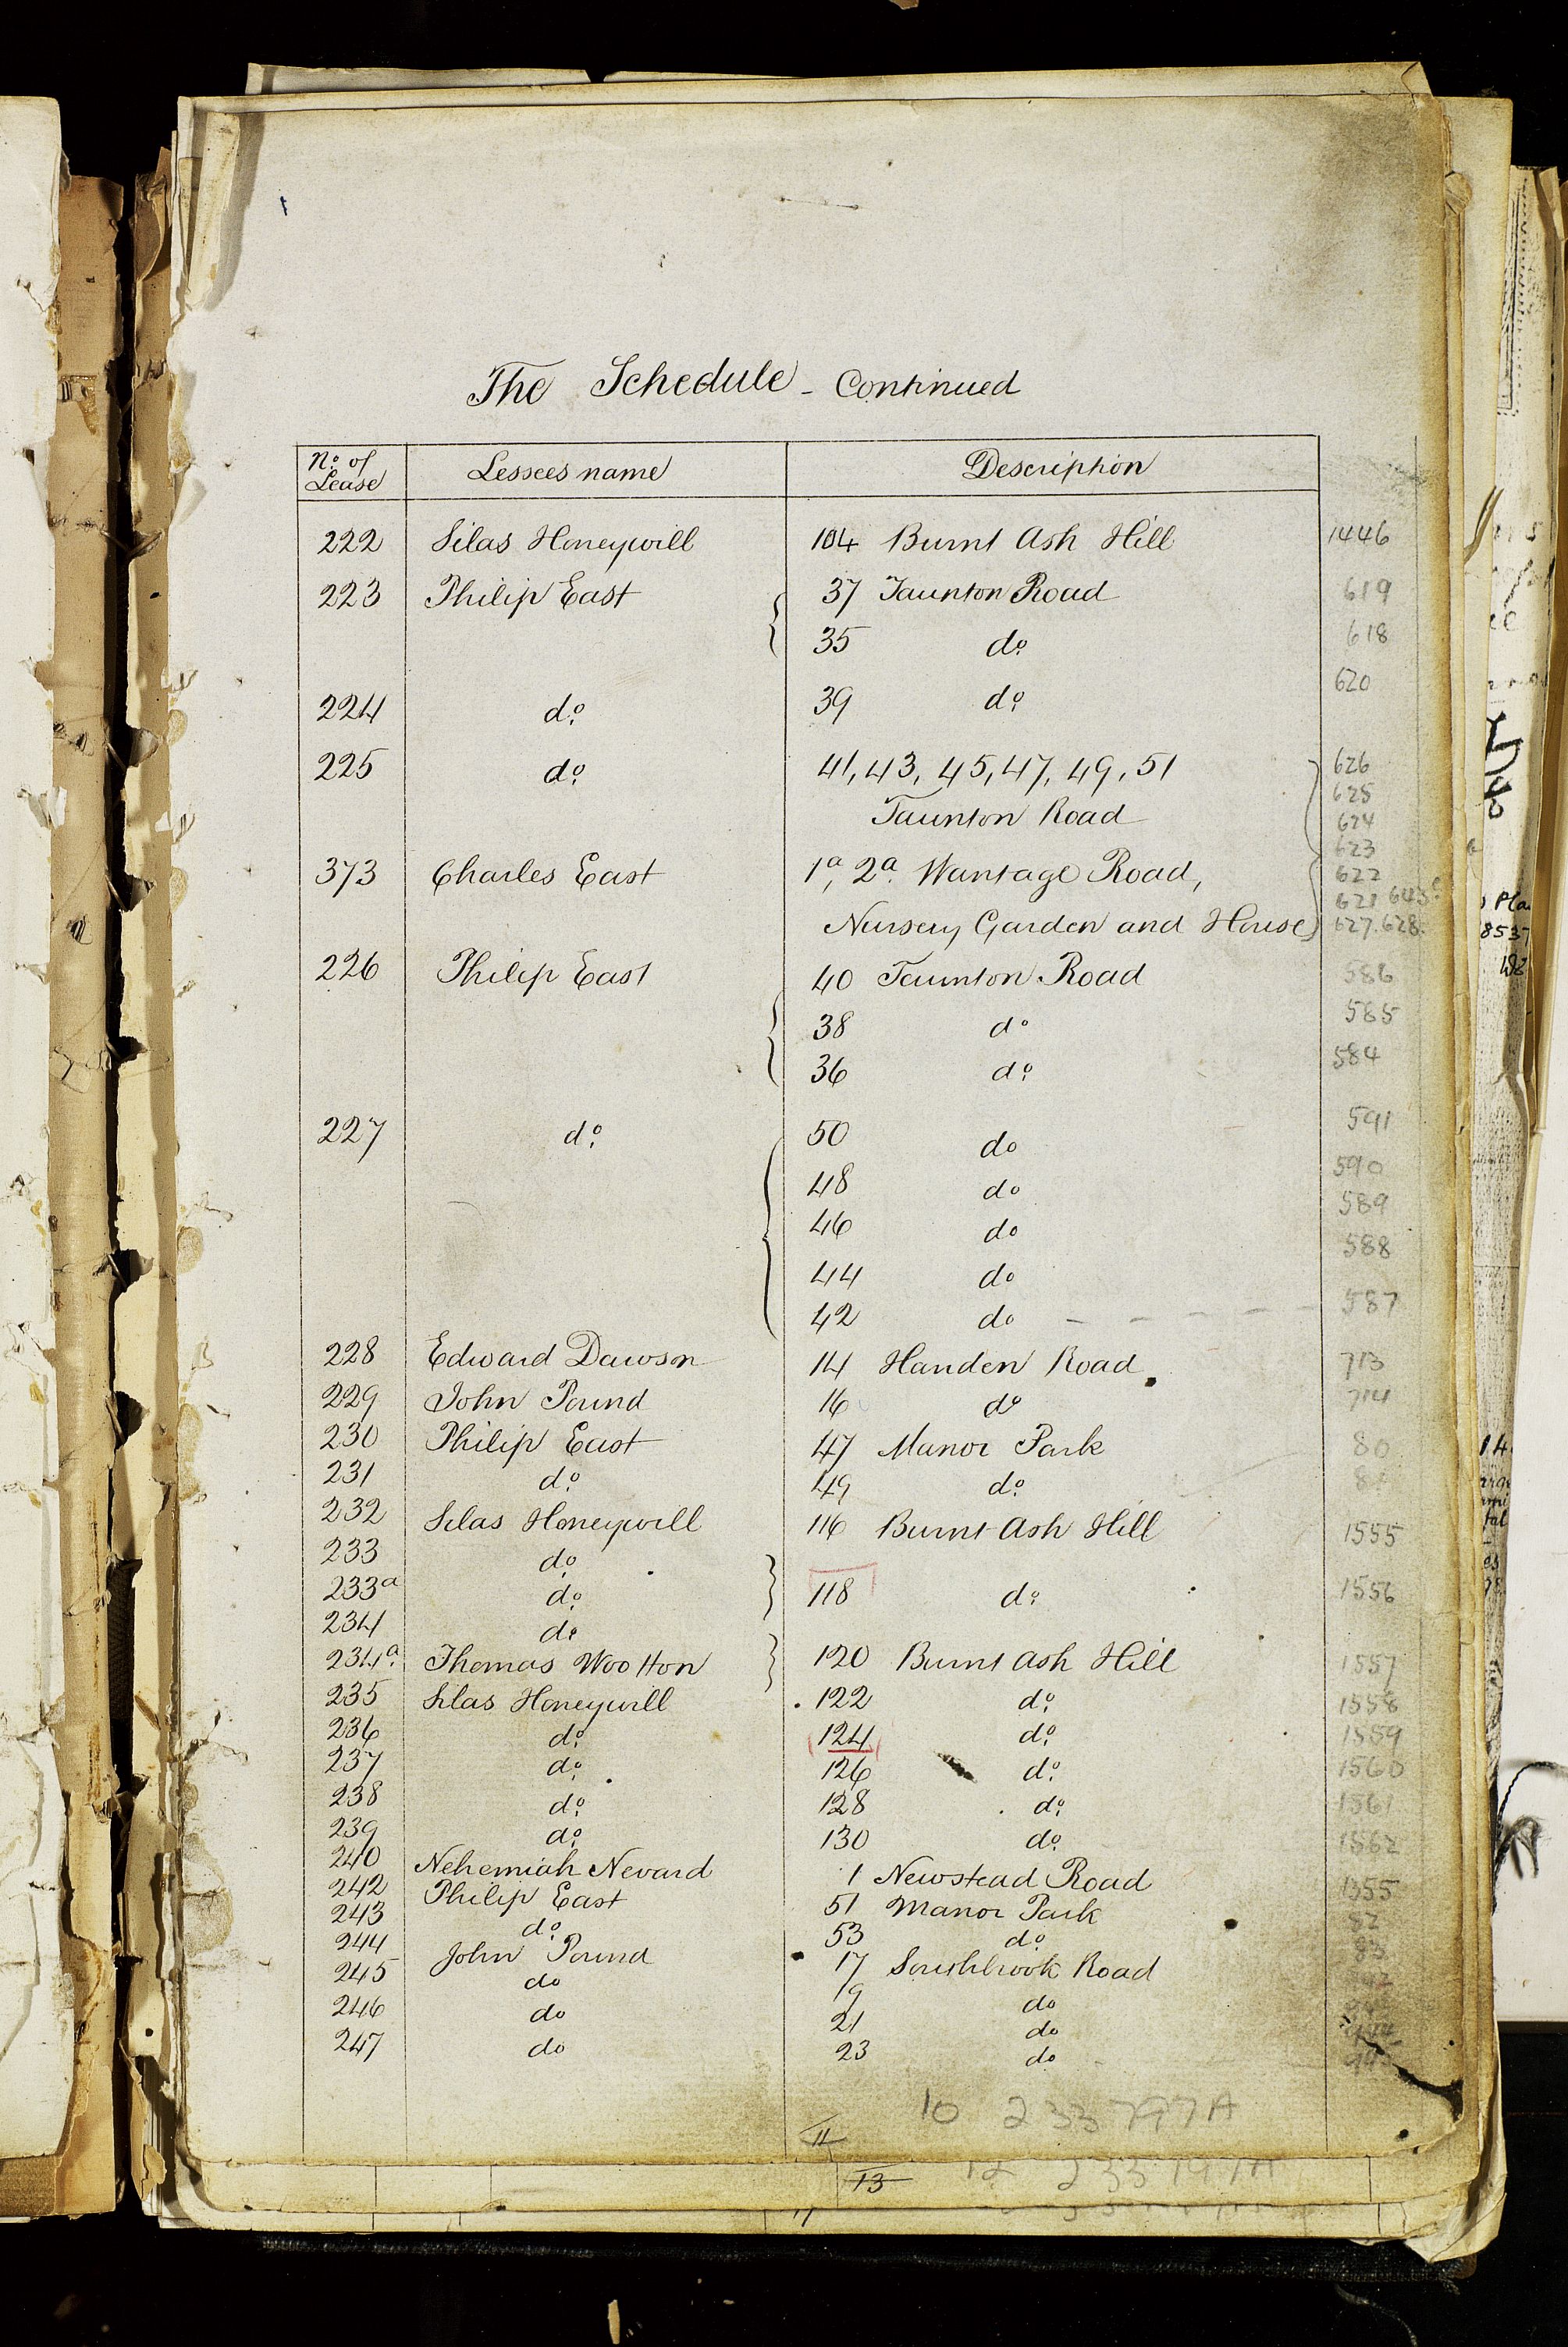 The Schedule - Continued
No. of Lease | Lessees name | Description
222 Silas Honeywill 104 Burnt Ash Hill 1446
223 Philip East 37 Taunton Road 619
35 do. 618
224 do. 39 do. 620
225 do. 41, 43, 45, 47, 49, 51 626
625
Taunton Road 624
623
373 Charles East 1a, 2a. Wantage Road, 622
621 643
Nursery Garden and House 627.628.
226 Philip East 40 Taunton Road 586
38 do 585
36 do. 584
227 do. 50 do 591
48 do 590
46 do 589
44 do 588
42 do - - - - 587
228 Edward Dawson 14 Handen Road 713
229 John Pound 16 do 714
230 Philip East 47 Manor Park 80
231 do. 49 do.
232 Silas Honeywill 116 Burnt Ash Hill 1555
233 do.
233a do. 118 do. 1556
234 do.
234a. Thomas Wootton 120 Burnt Ash Hill 1557
235 Silas Honeywill 122 do. 1558
236 do. 124 do. 1559
237 do. 126 do. 1560
238 do. 128 do. 1561
239 do. 130 do. 1562
240 Nehemiah Nevard 1 Newstead Road 1355
242 Philip East 51 Manor Park 82
243 do. 53 do. 83
244 John Pound 17 Southbrook Road
245 do 19 do
246 do 21 do
247 do 23 do
10 233797A
11
13 12 233797A